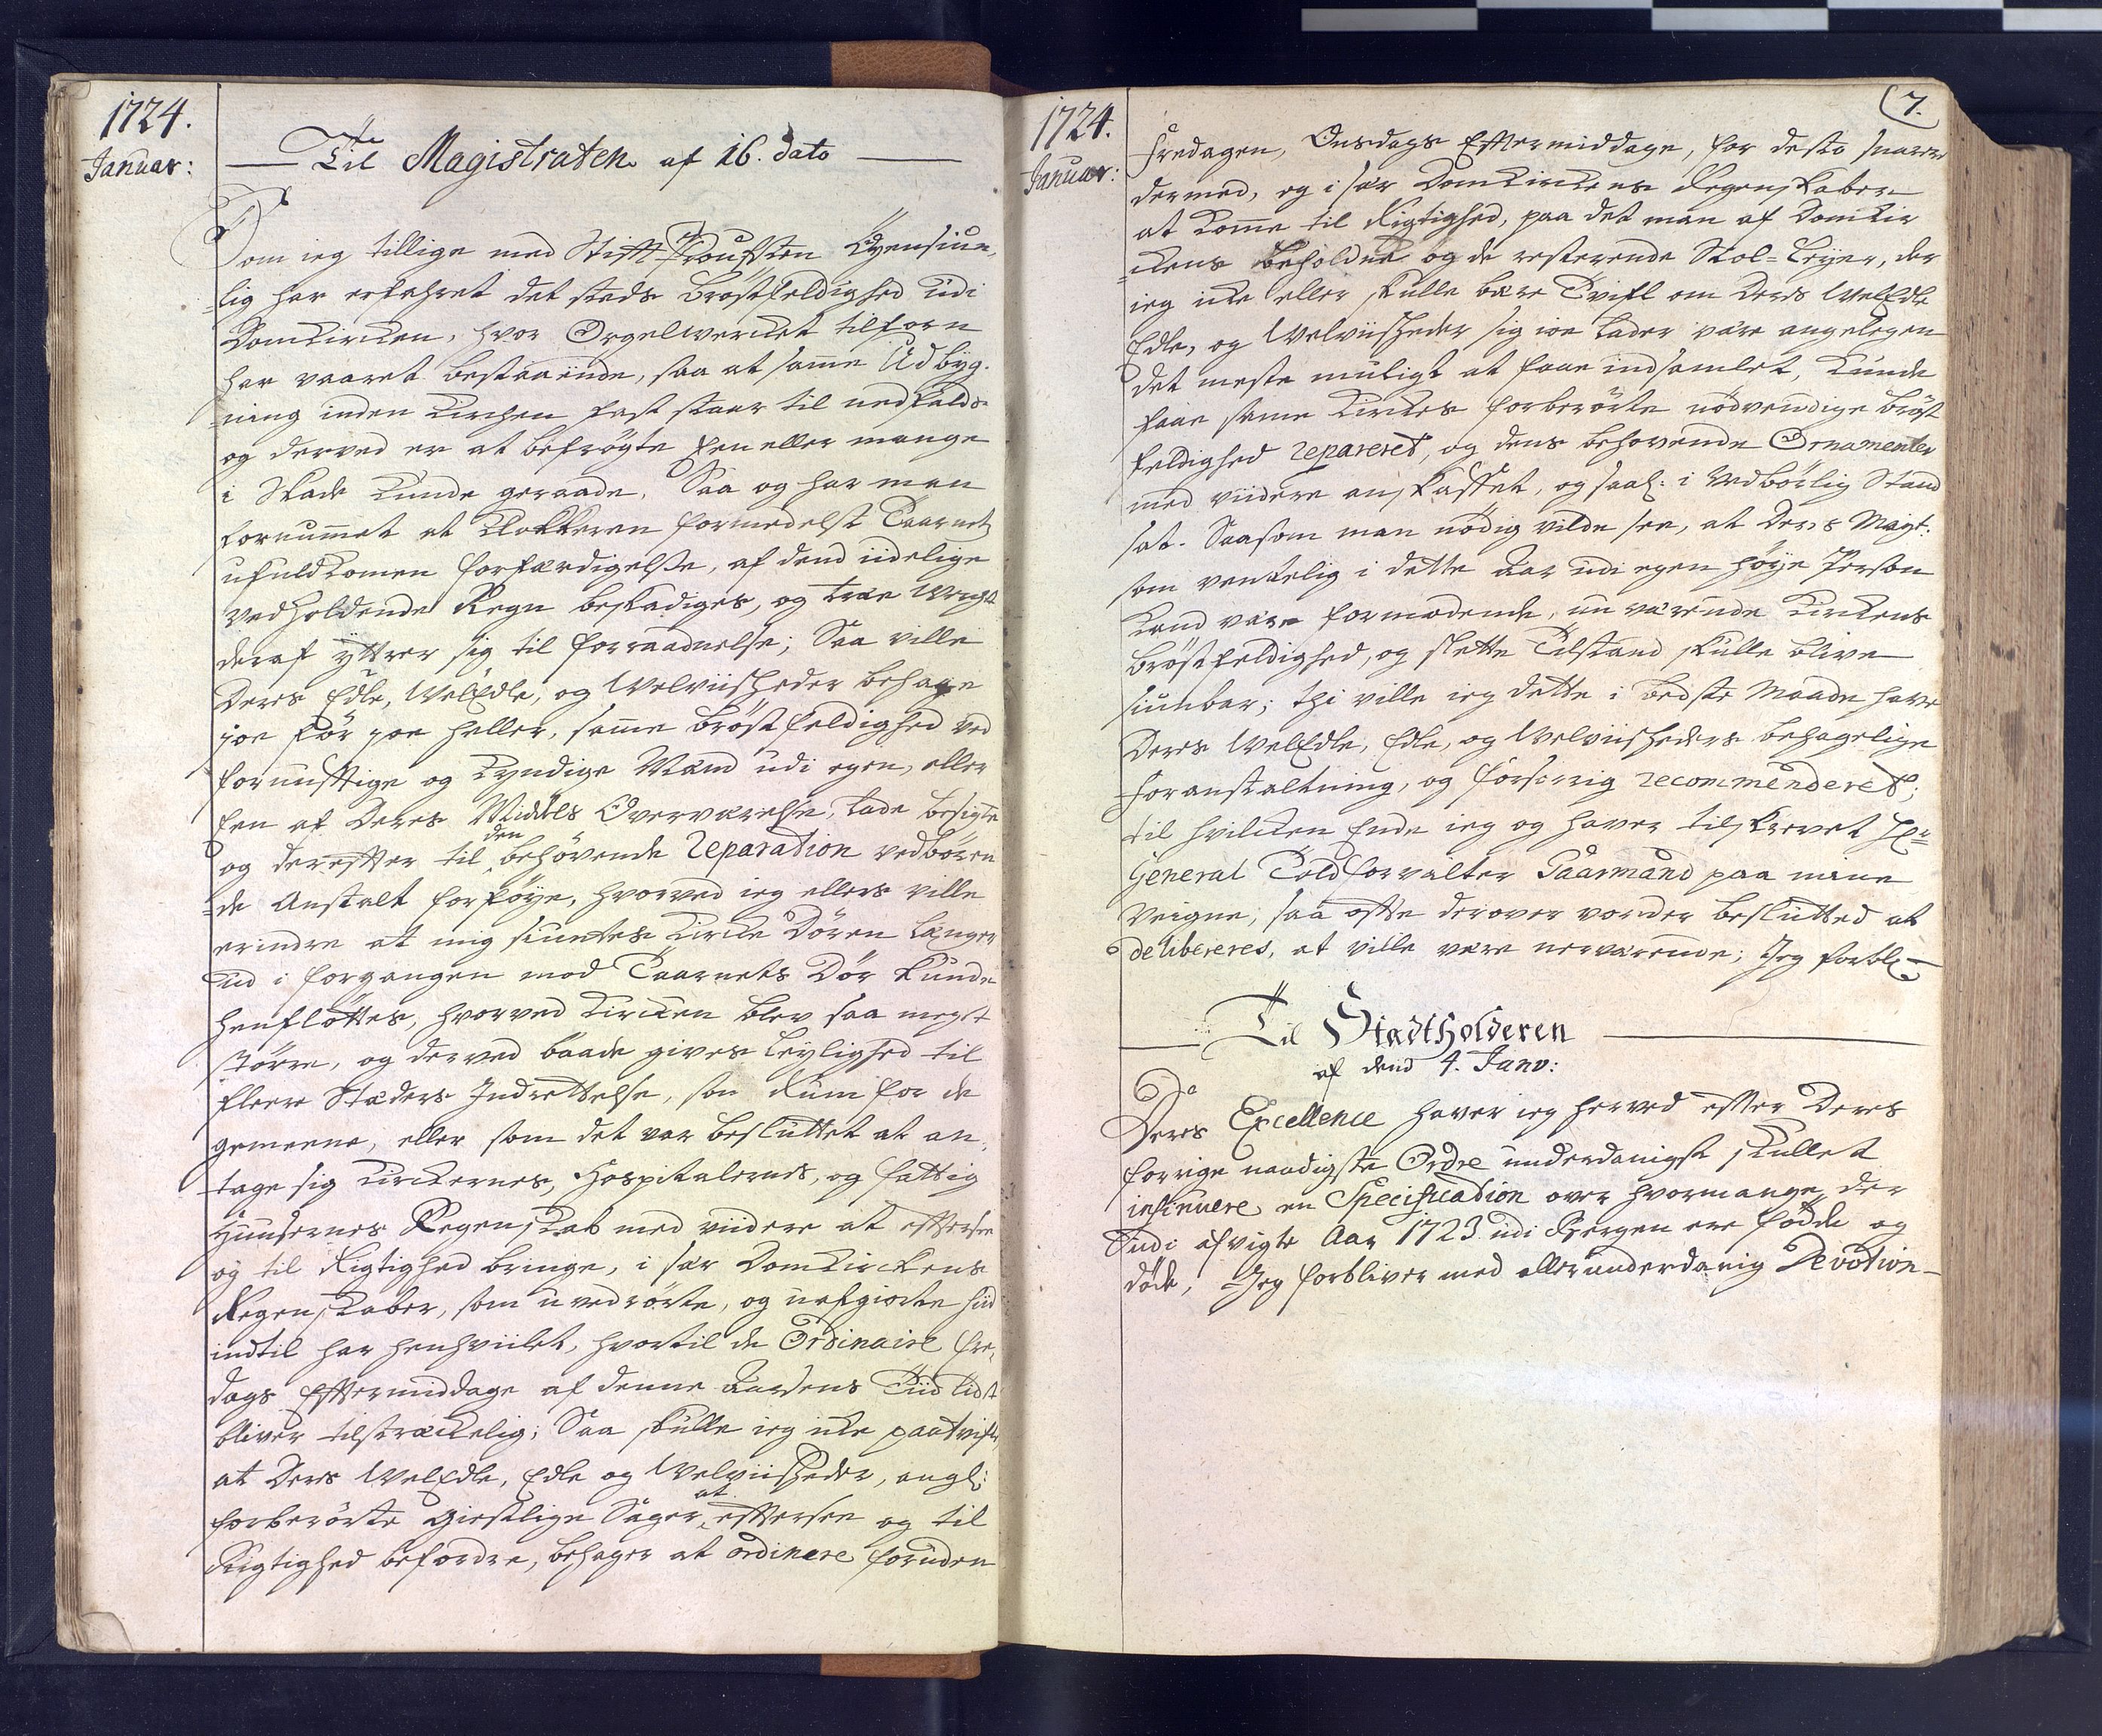 1724.
Januar:
Til Magistraten af 16. dato
Som ieg tillige med Stift Proufsten Øyensiun„
„lig har erfahret det steds Bröstfeldighed udi
Domkircken, hvor Orgelwercket tilforn
har vaaret bestaaende, saa at samme Udbyg„
„ning inden Kirchen fast staar til nedfalds
og derved er at befrögte Een eller mange
i Skade kunde geraade. Saa og har man
fornummet at Klokkeren formedelst Taarnets
ufuldkomen forfærdigelse, af dend iidelige
vedholdende Regn beskadiges, og træe
deraf yttrer sig til forraadnelse; Saa ville
Deres Edle, WelEdle, og Welviisheder behage
joe för joe heller, samme bröstfeldighed ved
fornufftige og kyndige Mænd udi egen, eller
Een af Deres Middels Overværelse, lade besigte
og derefter til den behövende Reparation vedbören
„de Anstalt forföye, hvorved ieg ellers ville
erindre at mig siuntes Kircke Dören længer
ud i forgangen mod Taarnets Dör kunde
henflöttes, hvorved Kircken blev saa meget
större, og derved baade gives leylighed til
fleere Stæders Indrettelse, som Rum for de
gemeene, eller som det var besluttet at an„
„tage sig Kirckernes, Hospitalernes, og fattig
Huusernes Regenskab med viidere at effterse
og til Rigtighed bringe, i sær Domkirckens
Regenskaber, som uvedrörte, og uafgiorte hid
indtil har henhviilet, hvortil de Ordinaire Fre„
dags Efftermiddage af denne Aarsens Tiid lidt
bliver tilstræckelig; Saa skulle ieg icke paatvifle,
at Deres WelEdle, Edle og Welviisheder, angl:
forberörte Giestlige Sager at effterse og til
Rigtighed befordre, behager at ordinere foruden
7.
1724.
Januar:
Fredagen, Onsdags Efftermiddage, for desto snarere
dermed, og i sær Domkirckens Regenskaber
at komme til Rigtighed, paa det man af Domkir
„ckens beholdne og de resterende Stol-Leyer, der
ieg icke eller skulle bære Tvifl om Deres WelEdle
Edle, og Welviisheder sig joe lader være angelegen
det meste muligt at faae indsamlet, kunde
faae samme Kirckes forberörte nödvendige Bröst
feldighed repareret, og dens behovende Ornamenter
med viidere anskaffet, og saal: i vedbörlig Stand
sat. Saasom man nödig vilde see, at Deres Mayt:
som ventelig i dette Aar udi egen höye Person
kand være formodende, nu værende Kirckens
Bröstfeldighed, og slette Tilstand skulle blive
siunbar; thi ville ieg dette i bedste Maade have
Deres WelEdle, Edle, og Welviisheders behagelige
Foranstaltning, og forsorrig recommenderet;
til hvilcken Ende ieg og haver tilskrevet Hr:
General Toldforvalter Paarmand paa mine
Veigne, saa offte derover vorder beslutted at
delibereres, at ville være nerværende; Jeg forbl:
Til Stadtholderen
af dend 4. Janv:
Deres Excellence haver ieg herved effter Deres
forrige naadigste Ordre underdanigst skullet
insinuere en Specification over hvormange der
udi afvigte Aar 1723 udi Bergen ere födde og
döde, Jeg forbliver med allerunderdanig Devotion